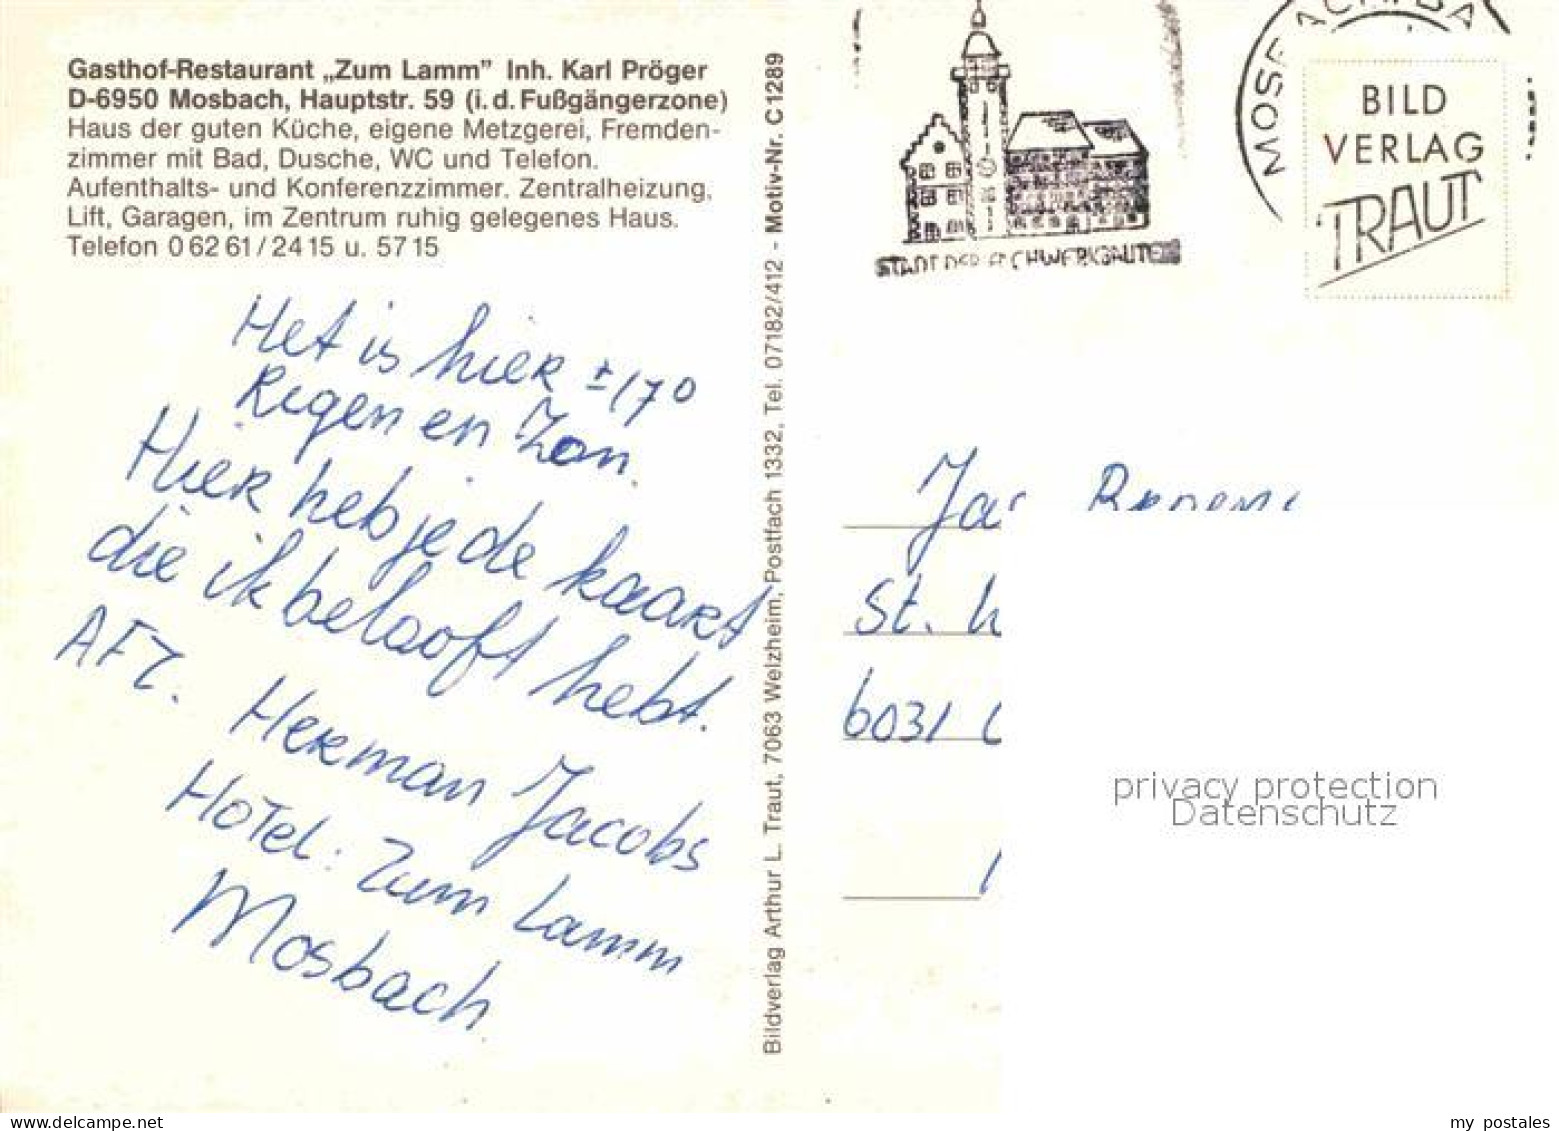 Gasthof-Restaurant „Zum Lamm” Inh. Karl Pröger
D-6950 Mosbach, Hauptstr. 59 (i. d. Fußgängerzone)
Haus der guten Küche, eigene Metzgerei, Fremden-
zimmer mit Bad, Dusche, WC und Telefon.
Aufenthalts- und Konferenzzimmer. Zentralheizung,
Lift, Garagen, im Zentrum ruhig gelegenes Haus.
Telefon 0 62 61 / 24 15 u. 57 15
Het is hier ± 17°
Regen en Zon.
Hier heb je de kaart
die ik belooft hebt.
AFZ.
Herman Jacobs
Hotel: Zum Lamm
Mosbach
Bildverlag Arthur L. Traut, 7063 Welzheim, Postfach 1332, Tel. 07182/412 - Motiv-Nr. C 1289
STADT DER FACHWERKBAUTEN
MOSBACH
BILD
VERLAG
TRAUT
St.
6031
privacy protection
Datenschutz
www.delcampe.net
my_postales